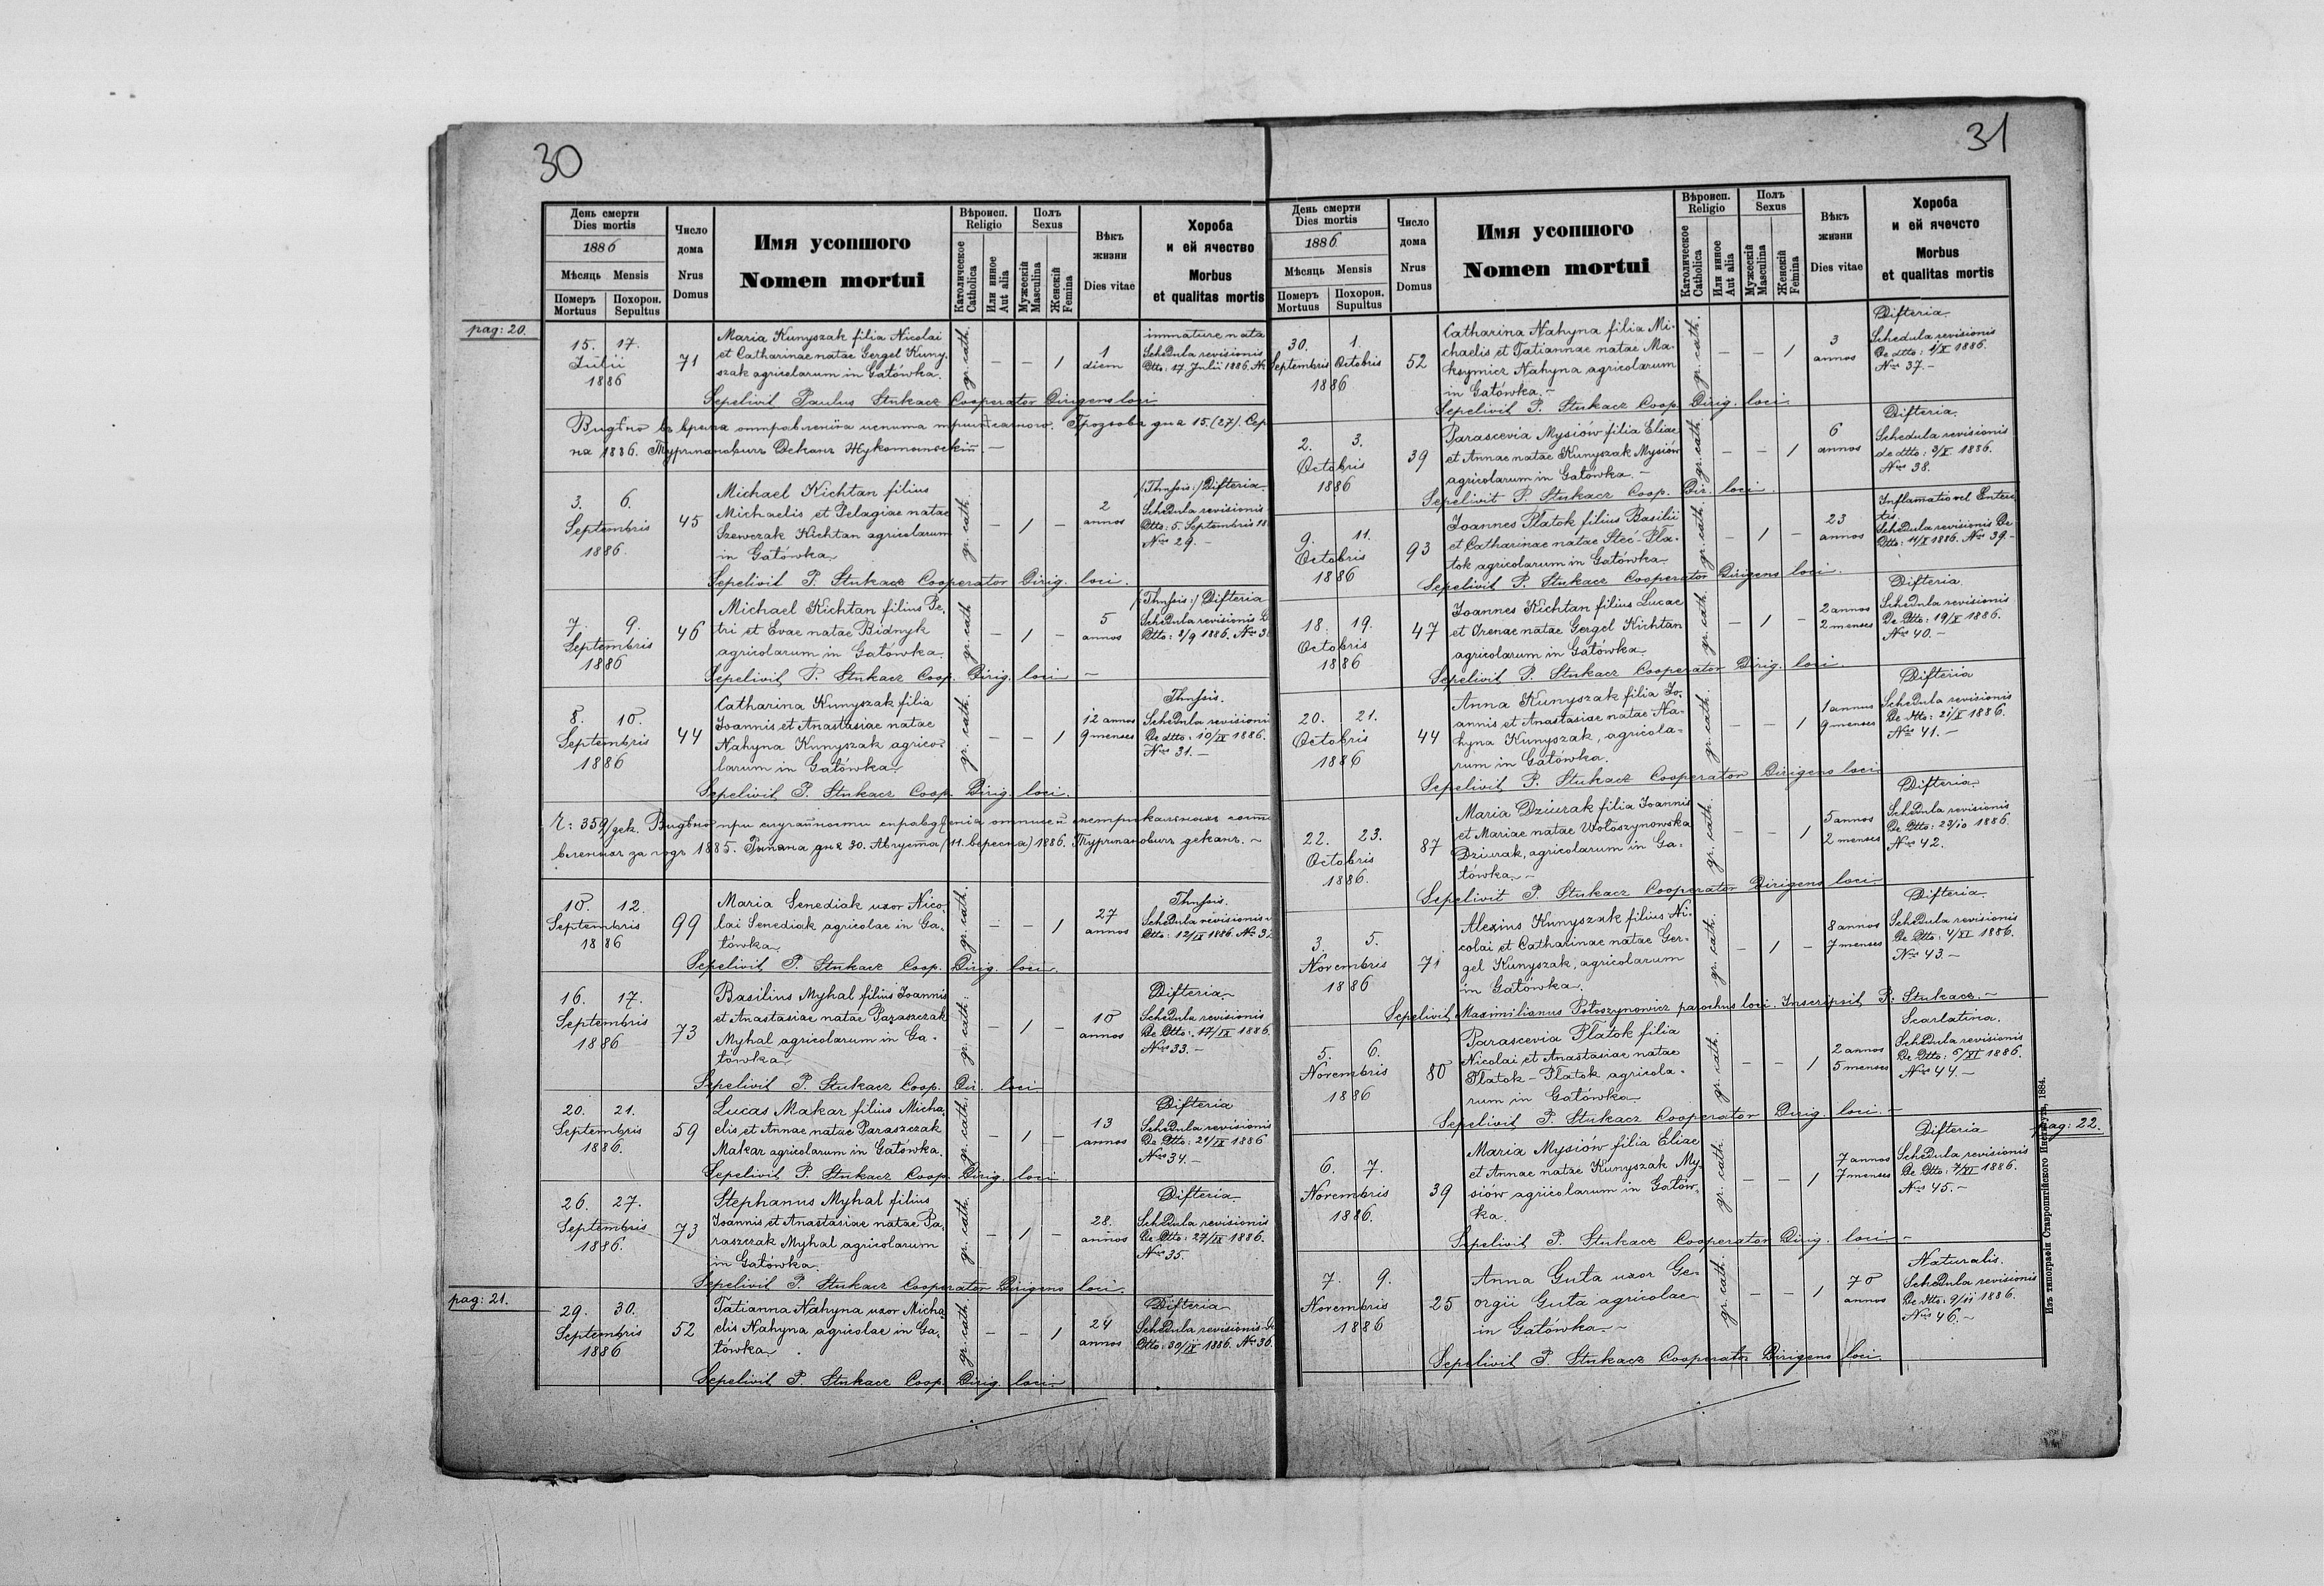 30
День смерти
Dies mortis
1886
Мѣсяць Mensis
Померъ Похорон.
Mortuus Sepultus
Число
дома
Nrus
Domus
Имя усопшого
Nomen mortui
Вѣроисп.
Religio
Католическое
Catholica
Или инное
Aut alia
Полъ
Sexus
Мужескій
Masculina
Женскій
Femina
Вѣкъ
жизни
Dies vitae
Хороба
и ей ячество
Morbus
et qualitas mortis
pag: 20.
15. 17.
Julii
1886
71
Maria Kunyszak filia Nicolai
et Catharinae natae Gergel Kuny-
szak agricolarum in Gatówka.
gr. cath.
– – 1
1
diem
immature nata
Schedula revisionis
dtto: 17. Julii 1886. №
Sepelivit Paulus Stukacz Cooperator Dirigens loci
на 1886. Туринановичъ Деканъ Жукотинскій. –
3. 6.
Septembris
1886.
45
Michael Kichtan filius
Michaelis et Pelagiae natae
Szewczak Kichtan agricolarum
in Gatówka
gr. cath.
– 1 –
2
annos
Difteria
Schedula revisionis
dtto: 5. Septembris 18
Nro 29. –
Sepelivit P. Stukacz Cooperator Dirig. loci.
7. 9.
Septembris
1886
46
Michael Kichtan filius Pe-
tri et Evae natae Bidnyk
agricolarum in Gatówka.
gr. cath.
– 1 –
5
annos
Difteria
Schedula revisionis
1886. Nro
Sepelivit P. Stukacz Coop. Dirig. loci –
8. 10.
Septembris
1886
44
Catharina Kunyszak filia
Joannis et Anastasiae natae
Nahyna Kunyszak agrico-
larum in Gatówka.
gr. cath.
– – 1
12 annos
9 menses
Schedula revisionis
De dtto: 10/IX 1886.
Nro 31. –
Sepelivit P. Stukacz Coop. Dirig. loci.
вленных за годъ 1885. дня 30. Августа (11. вересня) 1886. Туринановичъ деканъ. –
10. 12.
Septembris
1886
99
Maria Senediak uxor Nico-
lai Senediak agricolae in Ga-
tówka
gr. cath.
– – 1
27
annos
Schedula revisionis
dtto: 12/IX 1886. Nro 32
Sepelivit P. Stukacz Coop. Dirig. loci.
16. 17.
Septembris
1886
73
Basilius Myhal filius Joannis
et Anastasiae natae Paraszczak
Myhal agricolarum in Ga-
tówka
gr. cath.
– 1 –
10
annos
Difteria
Schedula revisionis
De dtto: 17/IX 1886.
Nro 33. –
Sepelivit P. Stukacz Coop. Dir. loci
20. 21.
Septembris
1886.
59
Lucas Makar filius Micha-
elis et Annae natae Paraszczak
Makar agricolarum in Gatówka.
gr. cath.
– 1 –
13
annos
Difteria
Schedula revisionis
De dtto: 21/IX 1886
Nro 34. –
Sepelivit P. Stukacz Coop. Dirig. loci
26. 27.
Septembris
1886.
73
Stephanus Myhal filius
Joannis et Anastasiae natae Pa-
raszczak Myhal agricolarum
in Gatówka.
gr. cath.
– 1 –
28.
annos
Difteria
Schedula revisionis
De dtto: 27/IX 1886.
Nro 35.
Sepelivit P. Stukacz Cooperator Dirigens loci.
pag: 21.
29. 30.
Septembris
1886
52
Tatianna Nahyna uxor Micha-
elis Nahyna agricolae in Ga-
tówka
gr. cath.
– – 1
24
annos
Difteria
Schedula revisionis
dtto: 30/IX 1886. Nro 36.
Sepelivit P. Stukacz Coop. Dirig. loci.
31
День смерти
Dies mortis
1886
Мѣсяць Mensis
Померъ Похорон.
Mortuus Supultus
Число
дома
Nrus
Domus
Имя усопшого
Nomen mortui
Вѣроисп.
Religio
Католическое
Catholica
Или инное
Aut alia
Полъ
Sexus
Мужескій
Masculina
Женскій
Femina
Вѣкъ
жизни
Dies vitae
Хороба
и ей ячечсто
Morbus
et qualitas mortis
30. 1.
Septembris Octobris
1886
52
Catharina Nahyna filia Mi-
chaelis et Tatiannae natae Ma-
ksymicz Nahyna agricolarum
in Gatówka. –
gr. cath.
– – 1
3
annos
Difteria
Schedula revisionis
De dtto: 1/X 1886.
Nro 37. –
Sepelivit P. Stukacz Coop. Dirig. loci.
2. 3.
Octobris
1886
39
Parascevia Mysiów filia Eliae
et Annae natae Kunyszak Mysiów
agricolarum in Gatówka. –
gr. cath.
– – 1
6
annos
Difteria.
Schedula revisionis
de dtto: 3/X 1886.
Nro 38.
Sepelivit P. Stukacz Coop. Dir. loci.
9. 11.
Octobris
1886
93
Joannes Platok filius Basilii
et Catharinae natae Steć-Pla-
tok agricolarum in Gatówka
gr. cath.
– 1 –
23
annos
Inflamatio vel Enteri-
tis.
Schedula revisionis De
dtto: 11/X 1886. Nro 39. –
Sepelivit P. Stukacz Cooperator Dirigens loci.
18. 19.
Octobris
1886
47
Joannes Kichtan filius Lucae
et Irenae natae Gergel Kichtan
agricolarum in Gatówka
gr. cath.
– 1 –
2 annos
2 menses
Difteria.
Schedula revisionis
De dtto: 19/X 1886.
Nro 40. –
Sepelivit P. Stukacz Cooperator Dirig. loci.
20. 21.
Octobris
1886
44
Anna Kunyszak filia Jo-
annis et Anastasiae natae Na-
hyna Kunyszak, agricola-
rum in Gatówka.
gr. cath.
– – 1
1 annus
9 menses
Difteria
Schedula revisionis
De dtto: 21/X 1886.
Nro 41. –
Sepelivit P. Stukacz Cooperator Dirigens loci
22. 23.
Octobris
1886.
87
Maria Dziurak filia Joannis
et Mariae natae Wołoszynowska
Dziurak, agricolarum in Ga-
tówka. –
gr. cath.
– – 1
5 annos
2 menses
Difteria
Schedula revisionis
De dtto: 23/10 1886.
Nro 42.
Sepelivit P. Stukacz Cooperator Dirigens loci
3. 5.
Novembris
1886
71
Alexius Kunyszak filius Ni-
colai et Catharinae natae Ger-
gel Kunyszak, agricolarum
in Gatówka.
gr. cath.
– 1 –
8 annos
7 menses
Difteria
Schedula revisionis
De dtto: 4/XI 1886.
Nro 43. –
Sepelivit Maximilianus Połoszynowicz parochus loci. Inscripsit P. Stukacz. –
5. 6.
Novembris
1886
80
Parascevia Platok filia
Nicolai et Anastasiae natae
Platok – Platok agricola-
rum in Gatówka
gr. cath.
– – 1
2 annos
5 menses
Scarlatina.
Schedula revisionis
De dtto: 6/XI 1886.
Nro 44. –
Sepelivit P. Stukacz Cooperator Dirig. loci. –
pag: 22.
6. 7.
Novembris
1886.
39
Maria Mysiów filia Eliae
et Annae natae Kunyszak My-
siów agricolarum in Gatów-
ka.
gr. cath.
– – 1
7 annos
7 menses
Difteria
Schedula revisionis
De dtto: 7/XI 1886.
Nro 45. –
Sepelivit P. Stukacz Cooperator Dirig. loci –
7. 9.
Novembris
1886
25
Anna Guta uxor Ge-
orgii Guta agricolae
in Gatówka. –
gr. cath.
– – 1
70
annos
Naturalis.
Schedula revisionis
De dtto: 9/11 1886.
Nro 46. –
Sepelivit P. Stukacz Cooperator Dirigens loci.
Изъ типографіи Ставропигійского Института, 1884.